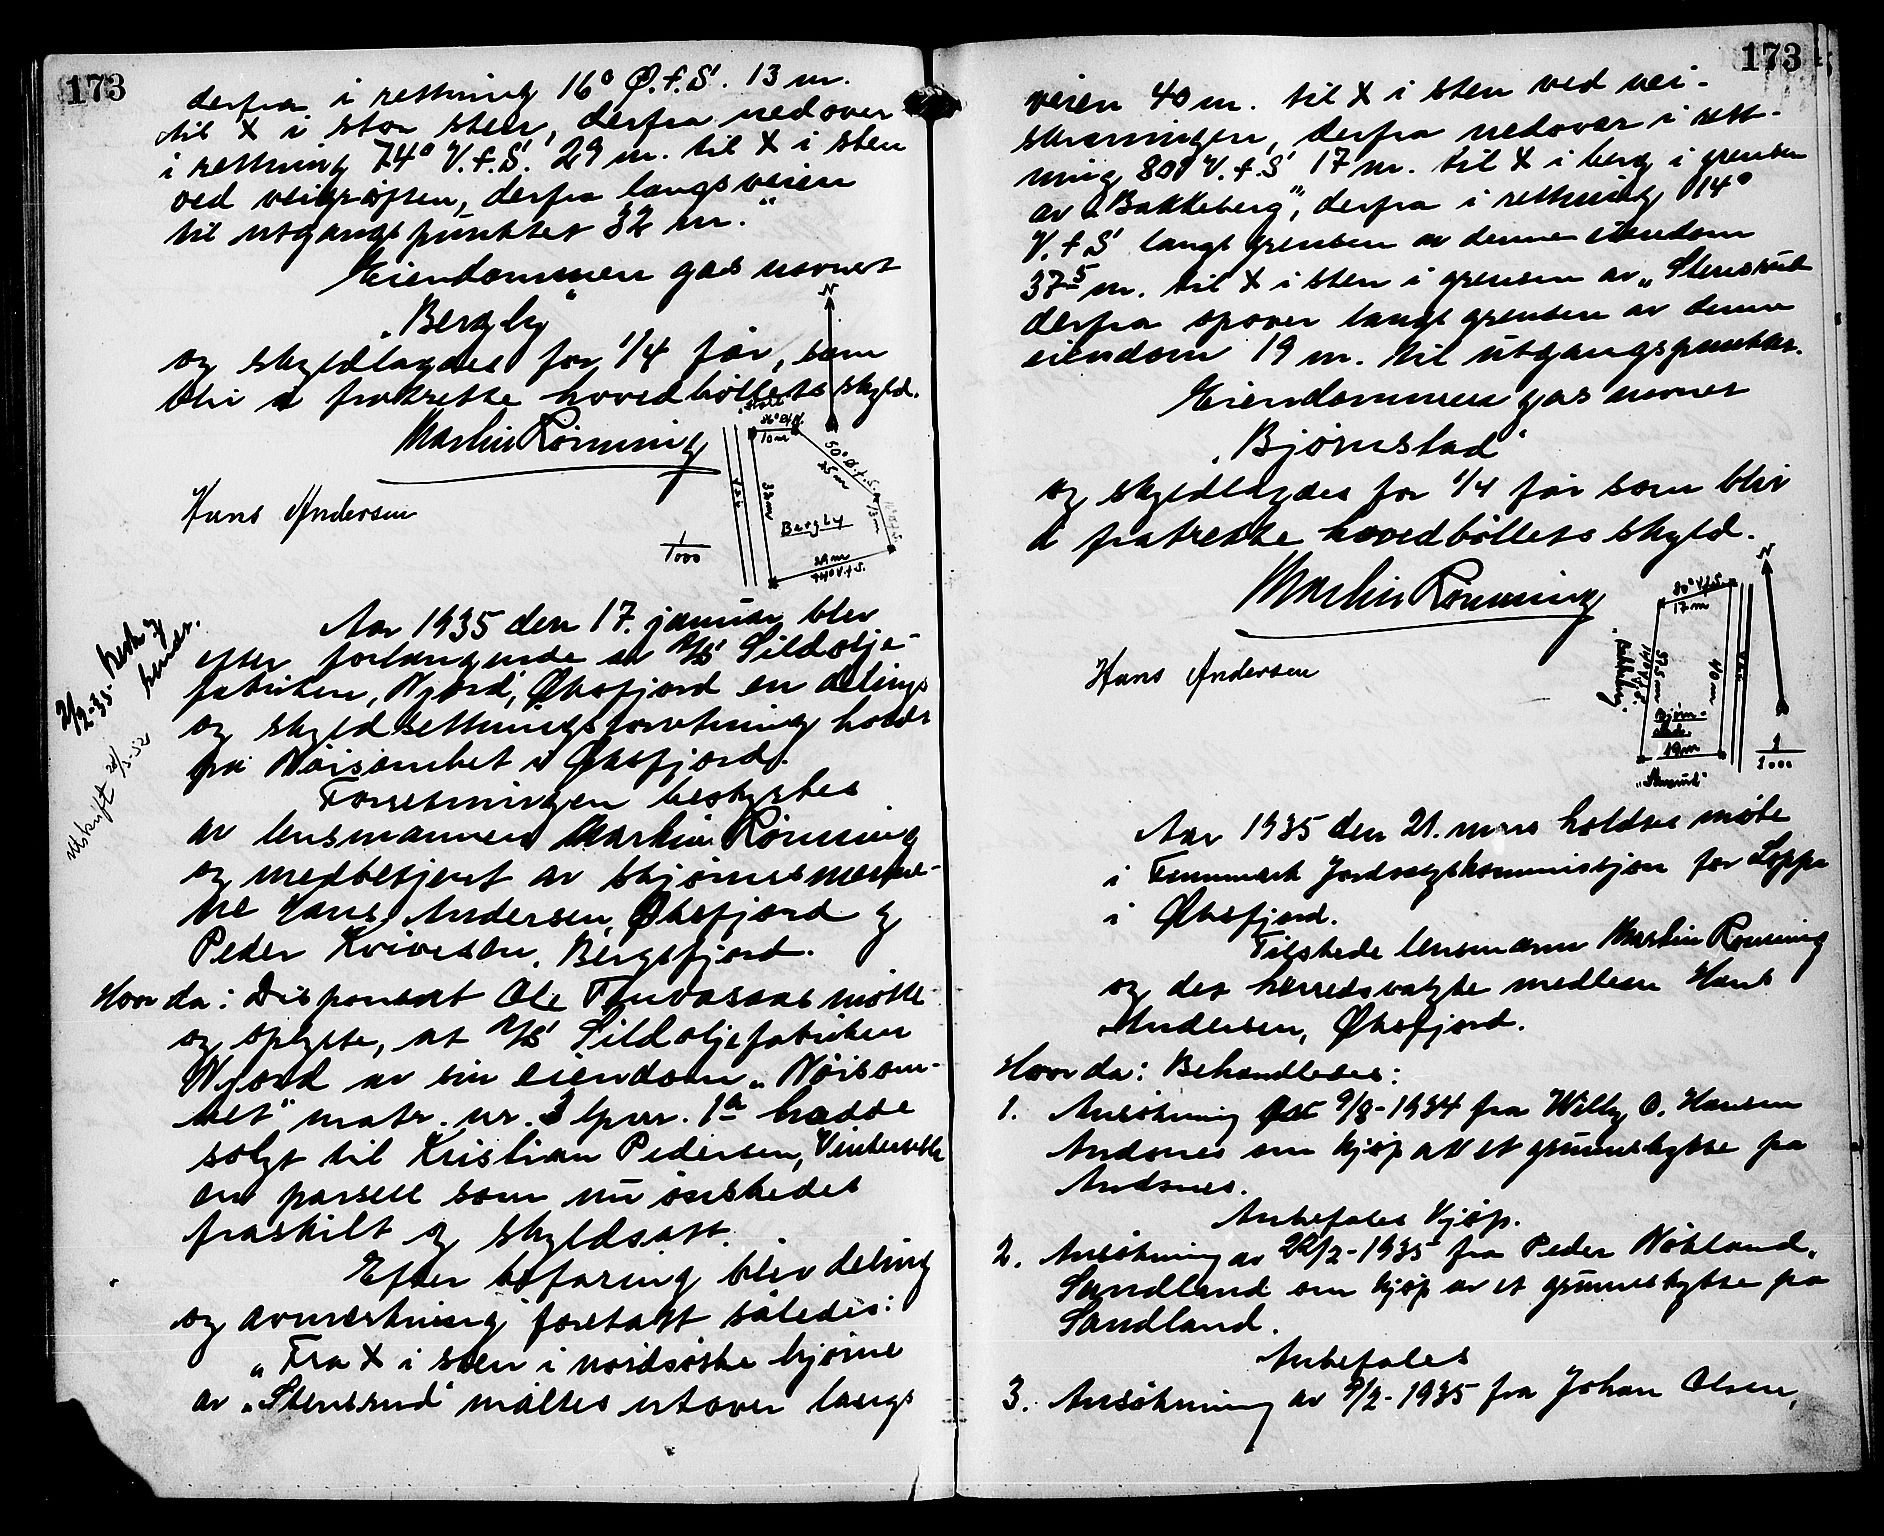 173
derfra i rettning 16° Ø.f.S. 13 m.
til X i stor sten, derfra nedover
i rettning 74° V.f.S. 29 m. til X i sten
ved veigrøften, derfra langs veien
til utgangspunktet 32 m."
Eiendommen gas navnet
"Bergby"
og skyldlagdes for 1/4 før, som
blir å fratrekke hovedbøllets skyld.
Martin Rønning
Hans Andersen
N
10 m
50° Ø.f.S.
25 m
13 m
32 m
Vei
Bergby
29 m
74° V.f.S.
1/1000
Aar 1935 den 17. januar blev
efter forlangende av A/S Sildolje-
fabriken "Njord", Øksfjord en delings
og skyldsettningsforretning holdt
på Nøisomhet i Øksfjord.
Forretningen bestyrtes
av lensmannen Martin Rønning
og medbetjent av skjønnsmenne-
ne Hans Andersen, Øksfjord og
Peder Kvivesen, Bergsfjord.
2/2-35.
Utskrift 21/3-52
Hvor da: Disponent Ole møtte
og oplyste, at A/S Sildoljefabriken
Njord av sin eiendom "Nøisom-
het" matr. nr. 3 lpnr. 1a hadde
solgt til Kristian Pedersen,
en parsell som nu ønskedes
fraskilt og skyldsatt.
Efter befaring blev deling
og avmerkning foretatt således:
"Fra X i sten i nordøstre hjørne
av "Stensrud" måltes utover langs
173
veien 40 m. til X i sten ved vei-
skraaningen, derfra nedover i rett-
ning 80° V.f.S 17 m. til X i berg i grensen
av "Bakkeberg", derfra i rettning 14°
V.f.S langs grensen av denne eiendom
37,5 m. til X i sten i grensen av "Stensrud"
derfra opover langs grensen av denne
eiendom 19 m. til utgangspunktet.
Eiendommen gas navnet
"Bjørnstad"
og skyldlagdes for 1/4 før som blir
å fratrekke hovedbøllets skyld.
Martin Rønning
Hans Andersen
N
80° V.f.S.
17 m
"Bakkeberg"
37.5 m
14° V.f.S.
40 m
Vei
Bjørn-
stad.
19 m
"Stensrud"
1/1000
Aar 1935 den 21. mars holdtes møte
i Finnmark Jordsalgskommissjon for Loppa
i Øksfjord.
Tilstede lensmann Martin Rønning
og det herredsvalgte medlem Hans
Andersen, Øksfjord.
Hvor da: Behandledes:
1. Ansøkning 9/8-1934 fra Willy O. Hansen
Andsnes om kjøp av et grunnstykke på
Andsnes.
Anbefales kjøp.
2. Ansøkning av 22/2-1935 fra Peder Nøkland,
Sandland om kjøp av et grunnstykke på
Sandland.
Anbefales
3. Ansøkning av 9/2-1935 fra Johan Olsen,